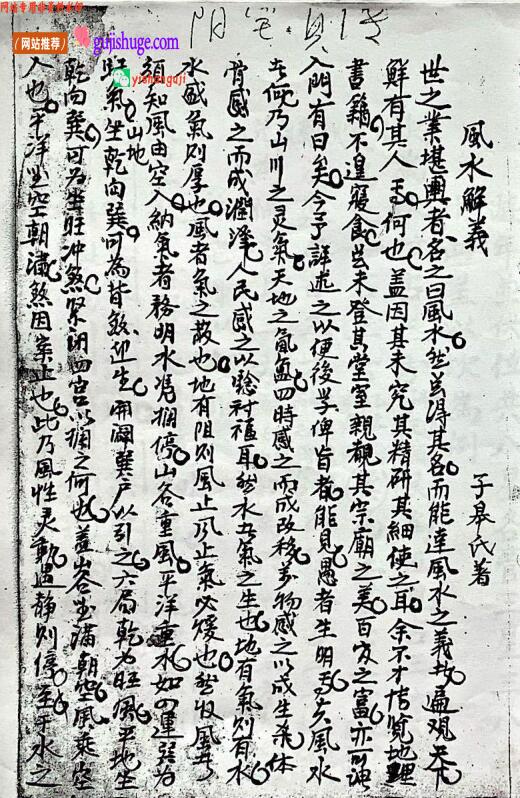 网站专用非卖品水印
阴宅·真传
（网站推荐）
gujishuge.com
yishengguji
風水解義
子皋氏著
世之業堪輿者名之曰風水然求得其名而能達風水之義者遍观天下
鮮有其人 何也盖因其未究其精研其細使之耳余不才博览地理
書籍不遑寢食 未登其堂室親覩其宗廟之美百官之富亦可謂
入門有日矣今予詳述之以便後学俾盲者能見愚者生明 夫風水
者何乃山川之灵氣天地之氤氳四時感之而成改移万物感之以成生 体
骨感之而成潤澤人民感之以 福耳然水者氣之生也地有氣則有水
水盛氣則厚也風者氣之散也地有阻則風止風止氣必緩也然收風者
須知風由空入納氣者務明水 欄停山谷重風平洋重水如四運巽方
旺氣生山地乾向巽可為皆 迎生開濶巽户以引之六局乾为旺風平地坐
乾向巽可为坐旺冲煞緊閉四宫以欄之何也盖山谷坐满朝空風乘空
入也平洋坐空朝满煞因案止也此乃風性灵動遇静則停至于水之